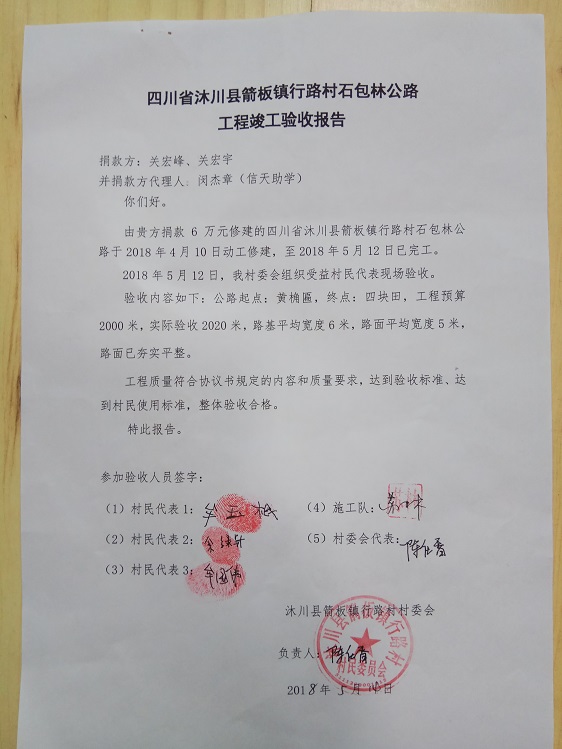 四川省沐川县箭板镇行路村石包林公路
工程竣工验收报告
捐款方：关宏峰、关宏宇
并捐款方代理人：闵杰章（信天助学）
你们好。
由贵方捐款 6 万元修建的四川省沐川县箭板镇行路村石包林公
路于 2018 年 4 月 10 日动工修建，至 2018 年 5 月 12 日已完工。
2018 年 5 月 12 日，我村委会组织受益村民代表现场验收。
验收内容如下：公路起点：黄桷匾，终点：四块田，工程预算
2000 米，实际验收 2020 米，路基平均宽度 6 米，路面平均宽度 5 米，
路面已夯实平整。
工程质量符合协议书规定的内容和质量要求，达到验收标准、达
到村民使用标准，整体验收合格。
特此报告。
参加验收人员签字：
（1）村民代表 1：
（4）施工队：
（2）村民代表 2：
（5）村委会代表：
（3）村民代表 3：
沐川县箭板镇行路村村委会
负责人：
沐川县箭板镇行路村
村民委员会
2018 年 5 月 日